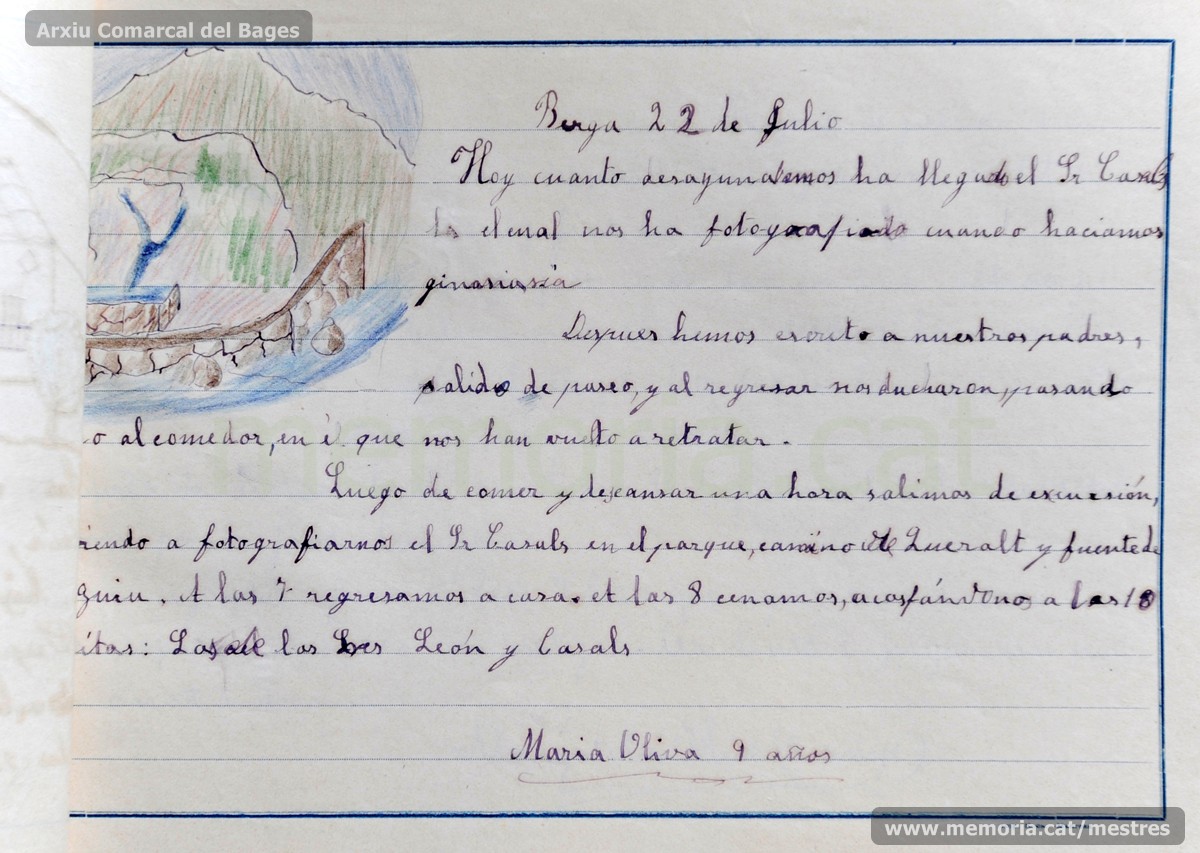 Arxiu Comarcal del Bages
Berga 22 de Julio
Hoy cuanto desayunabemos ha llegado el Sr Casals
el cual nos ha fotografiado cuando haciamos
Despues hemos escrito a nuestros padres,
salido de paseo, y al regresar nos ducharon, pasando
o al comedor, en él que nos han vuelto a retratar.
Luego de comer y descansar una hora salimos de excursión,
iendo a fotografiarnos el Sr Casals en el parque, camino de Queralt y fuente de
A las 7 regresamos a casa. A las 8 cenamos, acostándonos a las 10
itas: Las de los Sres León y Casals
Maria Oliva 9 años
memoria.cat
www.memoria.cat/mestres